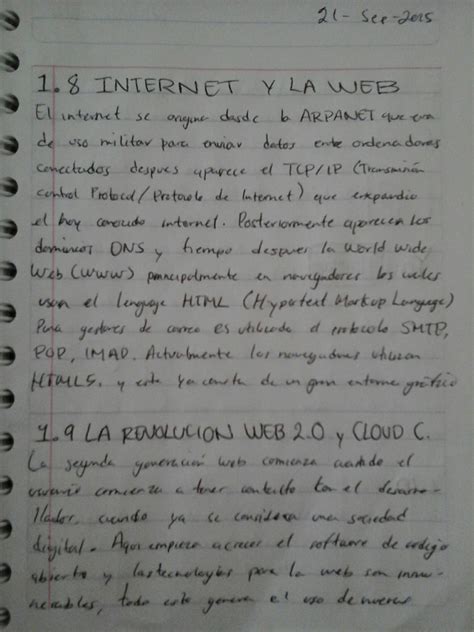 21-Sep-2015
1.8 INTERNET Y LA WEB
El internet se origina desde la ARPANET que era
de uso militar para enviar datos entre ordenadores
conectados despues aparece el TCP/IP (Transmisión
control Protocol/Protocolo de Internet) que expandio
el hoy conocido internet. Posteriormente aparecen los
dominios DNS y tiempo despues la World Wide
Web (WWW) principalmente en navegadores los cuales
usan el lenguage HTML (Hypertext Markup Language)
Para gestores de correo es utilizado el protocolo SMTP,
POP, IMAP. Actualmente los navegadores utilizan
HTML5. y este ya consta de un gran entorno gráfico
1.9 LA REVOLUCION WEB 2.0 y CLOUD C.
La segunda generación web comienza cuando el
usuario comienza a tener contacto con el desarro-
llador, cuando ya se considera una sociedad
digital. Aqui empieza a crecer el software de codigo
abierto y las tecnologias para la web son innu-
merables, todo esto genera el uso de nuevas